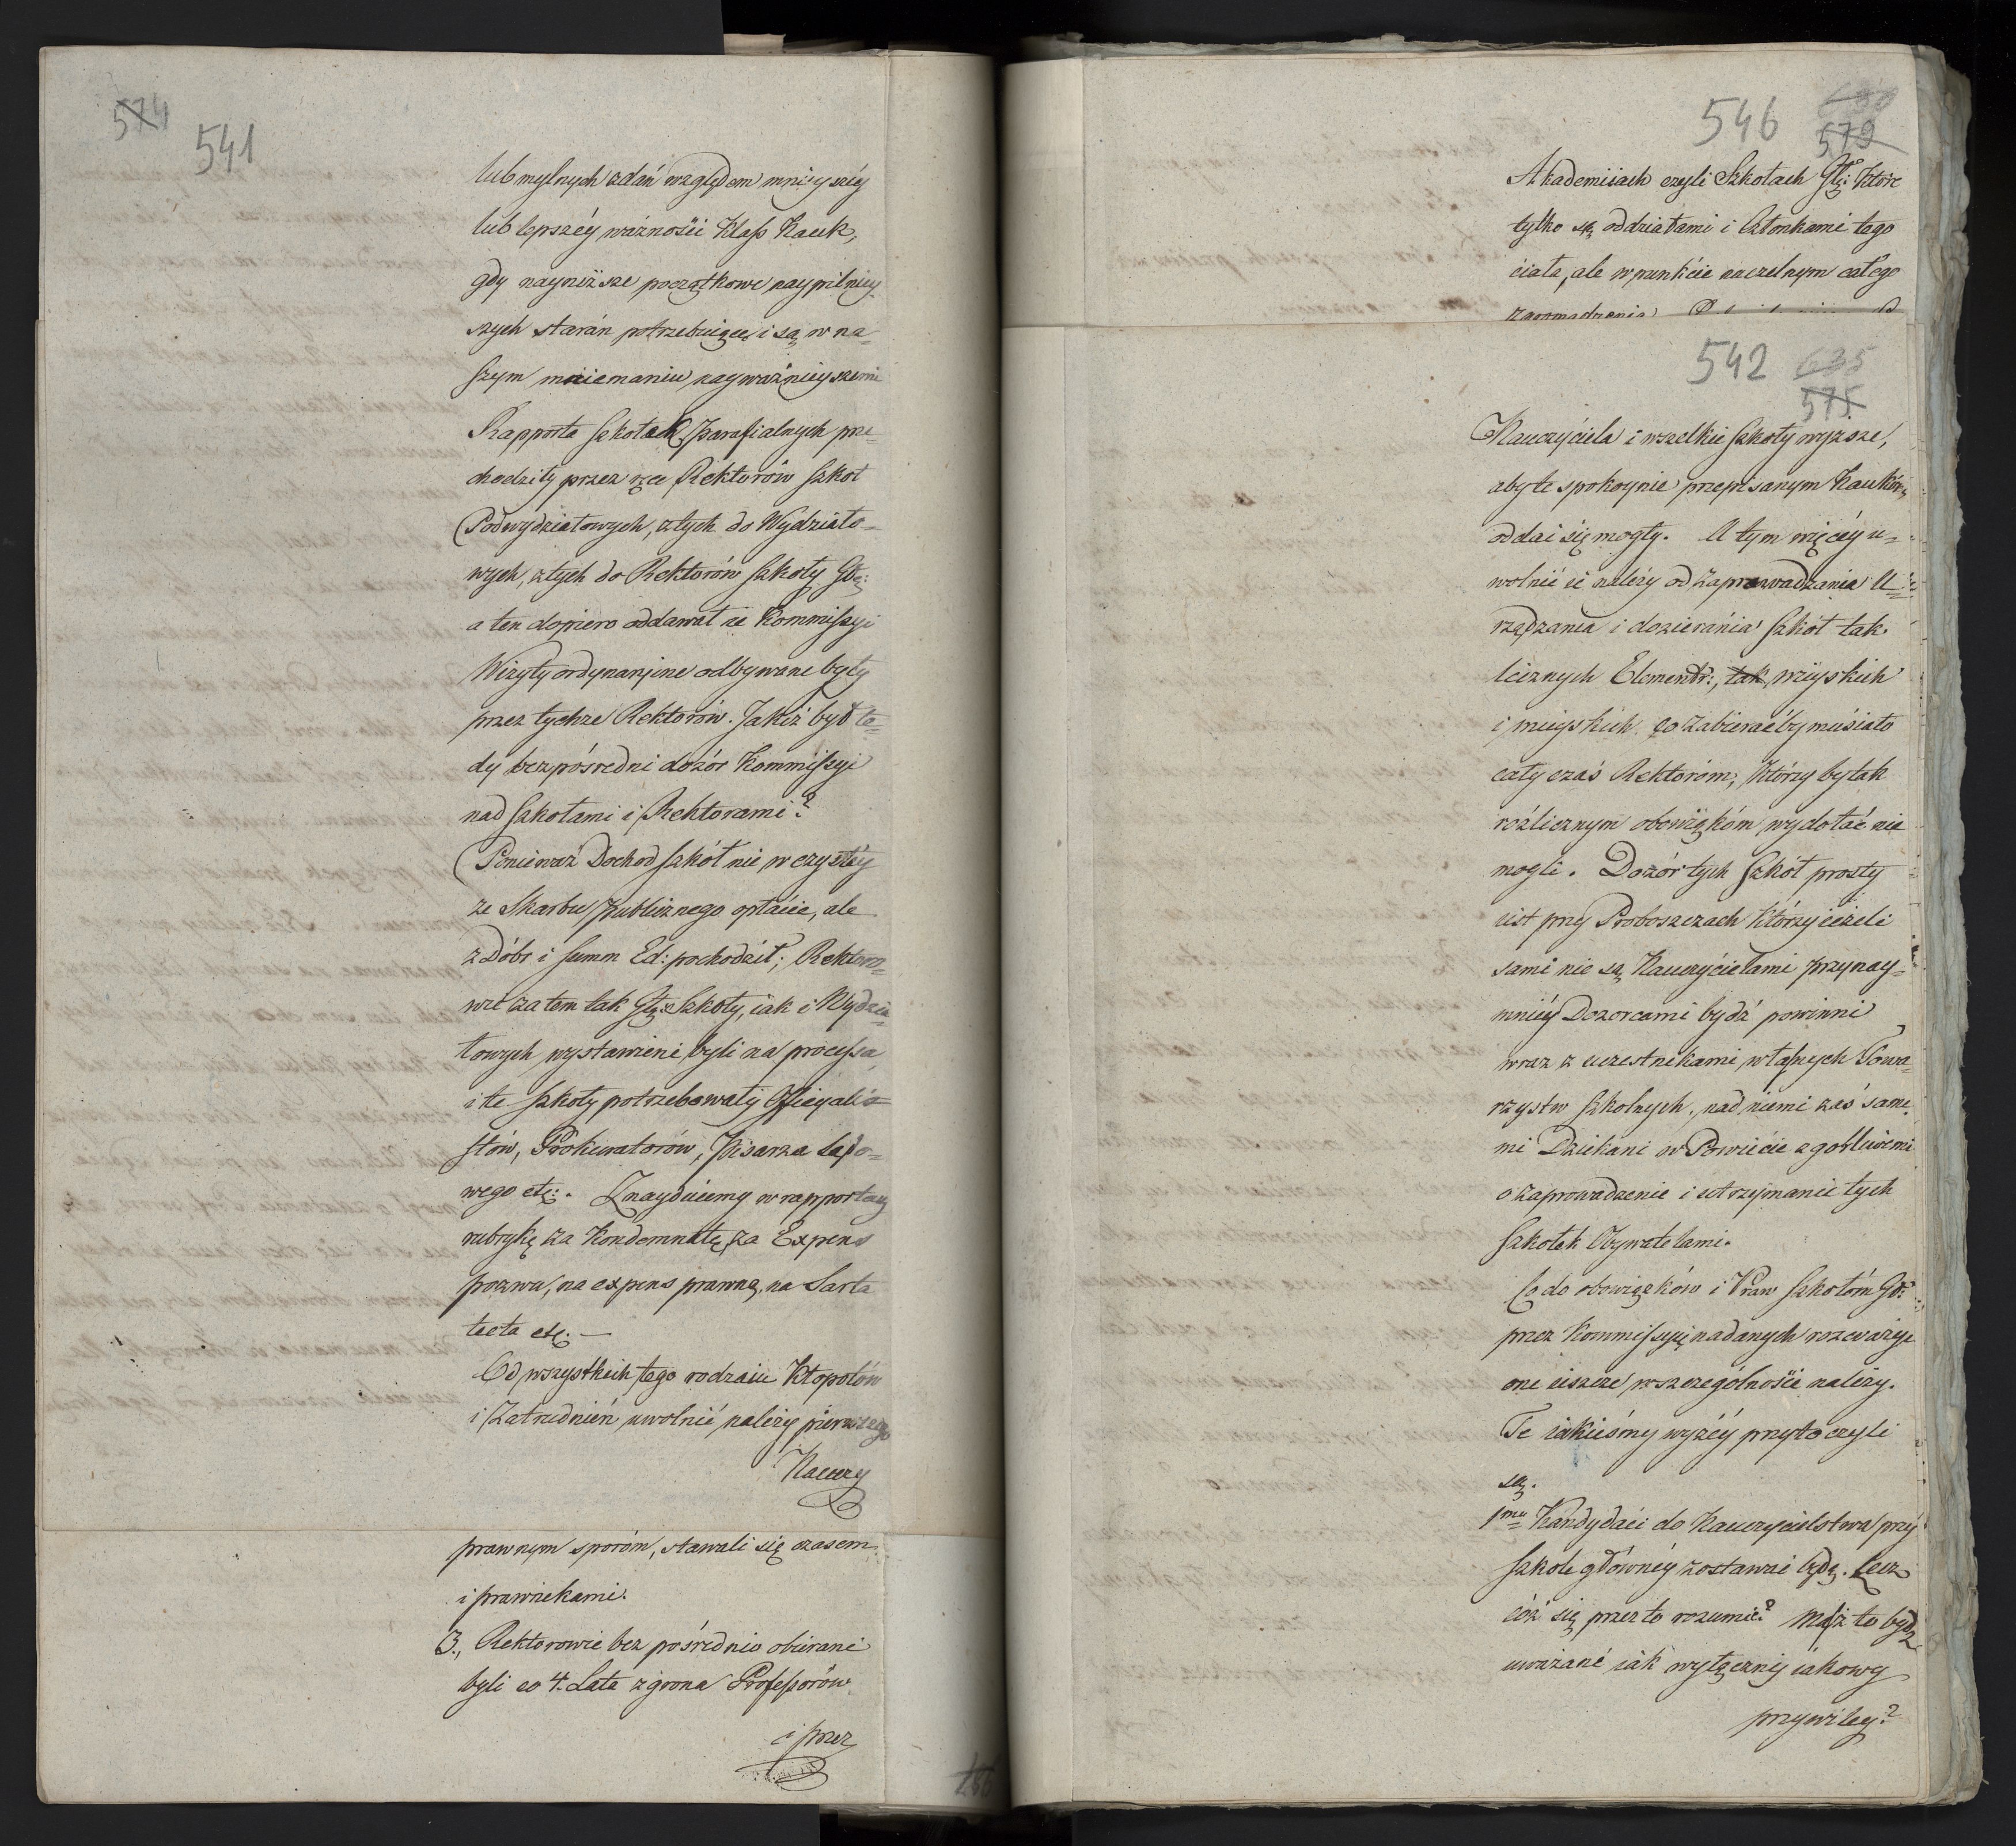 574
541
lub mylnych zdań względem mnieyszéy
lub lepszéy ważności Klass Nauk,
gdy nayniższe początkowe naypilniey
szych starań potrzebuiące, i są w na=
szym mniemaniu nayważnieyszemi
Rapporta szkołek parafialnych prze=
chodziły przez ręce Rektorów szkół
Podwydziałowych, z tych do Wydziało=
wych, z tych do Rektorów szkoły Gł:
a ten dopiero oddawał ie Kommissyi
Wizyty ordynaryine odbywane były
przez tychże Rektorów. Jakiż był te=
dy bezpośredni dozór Kommissyi
nad szkołami i Rektorami?
Ponieważ Dochod szkół nie w czystéy
ze Skarbu publicznego opłacie, ale
z Dóbr i summ Ed: pochodził; Rektoro=
wie zatem tak Głę: Szkoły, iak i Wydzia=
łowych wystawieni byli na processa,
i te szkoły potrzebowały Officyali=
stów, Prokuratorów, Pisarza sądo=
wego etc:. Znayduiemy w rapportach
rubrykę za Kondemnatę, za Expens
pozwu, na expens prawną, na Sarta
tecta etc. —
Od wszystkich tego rodzaiu Kłopotów
i Zatrudnień uwolnić należy pierwszego
Nauczy
prawnym sporóm, stawali się czasem
i prawnikami.
3., Rektorowie bez pośrednio obierani
byli co 4. Lata z grona Professorów
i przez
546
579
Akademiiach czyli Szkołach Głę: które
tylko są oddziałami i Członkami tego
ciała, ale w punkcie naczelnym całego
zgromadzenia
542 635
575
Nauczyciela i wszelkie szkoły wyższe,
aby te spokoynie przepisanym Naukóm
oddać się mogły. A tym więcéy u=
wolnić ie należy od Zaprowadzania U=
rządzania i dozierania szkół tak
licznych Elementr:, tak wieyskich
i mieyskich. co zabierać by musiało
cały czas Rektoróm, którzy by tak
rozlicznym obowiązkóm wydołać nie
mogli. Dozór tych szkół prosty
iest przy Proboszczach którzy ieżeli
sami nie są Nauczycielami przynay=
mniéy Dozorcami bydź powinni
wraz z uczestnikami własnych Towa=
rzystw szkolnych, nad niemi zaś same=
mi Dziekani w Powiecie z gorliwemi
o zaprowadzenie i utrzymanie tych
szkołek Obywatelami.
Co do obowiązków i Praw szkołóm Gł:
przez Kommissyię nadanych rozważyć
one ieszcze w szczególności należy.
Te iakieśmy wyżéy przytoczyli
są.
1mo Kandydaci do Nauczycielstwa przy
szkole głównéy zostawać będą. Lecz
cóż się przez to rozumie? Maż to bydź
uważané iak wyłączny iakowy
przywiley?